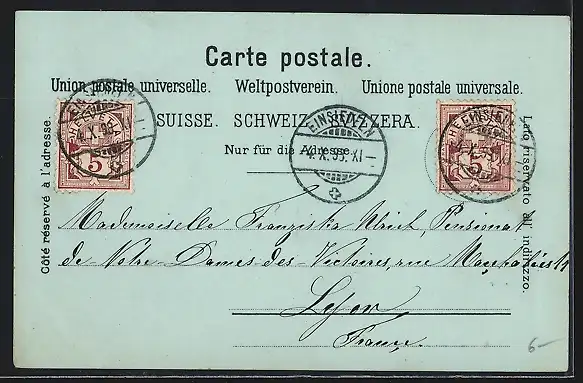 Carte postale.
Union postale universelle. Weltpostverein. Unione postale universale.
SUISSE. SCHWEIZ. SVIZZERA.
Nur für die Adresse.
Côté réservé à l'adresse.
Lato riservato all' indirizzo.
HELVETIA
5
EINSIEDELN
4.X.95.XI-
HELVETIA
5
EINSIEDELN
Mademoiselle Franziska Ulrich, Pensionat
de Notre-Dames des Victoires, rue
Lyon
France.
6-